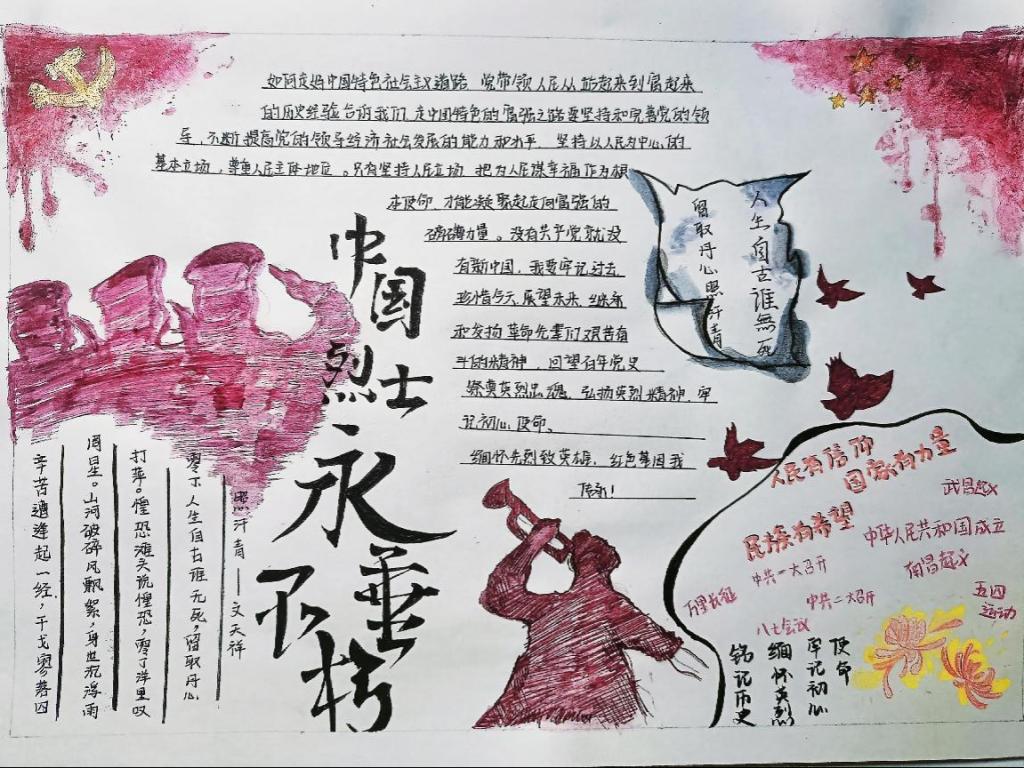 如何走好中国特色社会主义道路 党带领人民从站起来到富起来
的历史经验告诉我们,走中国特色的富强之路要坚持和完善党的领
导,不断提高党的领导经济社会发展的能力和水平、坚持以人民为中心的
基本立场,尊重人民主体地位。只有坚持人民立场、把为人民谋幸福作为根
本使命,才能凝聚起走向富强的
磅礴力量。没有共产党就没
有新中国,我要牢记过去
珍惜今天,展望未来,继承
和发扬革命先辈们艰苦奋
斗的精神,回望百年党史
祭奠英烈忠魂,弘扬英烈精神,牢
记初心、使命。
缅怀先烈致英雄,红色基因我
传承!
人生自古谁無死
留取丹心照汗青
中国
烈士
永垂
不朽
辛苦遭逢起一经,干戈寥落四
周星。山河破碎风飘絮,身世沉浮雨
打萍。惶恐滩头说惶恐,零丁洋里叹
零丁人生自古谁无死,留取丹心
照汗青——文天祥
人民有信仰
国家有力量
民族有希望
武昌起义
中华人民共和国成立
南昌起义
中共一大召开
万里长征
中共二大召开
五四
运动
八七会议
使命
牢记初心
缅怀英烈
铭记历史